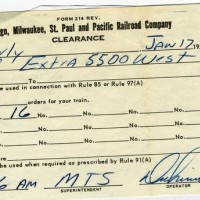 FORM 214 REV.
ago, Milwaukee, St. Paul and Pacific Railroad Company
CLEARANCE
JAN 17, 19
Extra 5500 West
To
used in connection with Rule 85 or Rule 97(A)
orders for your train.
16
be used when required as prescribed by Rule 91(A)
AM MTS
SUPERINTENDENT
OPERATOR